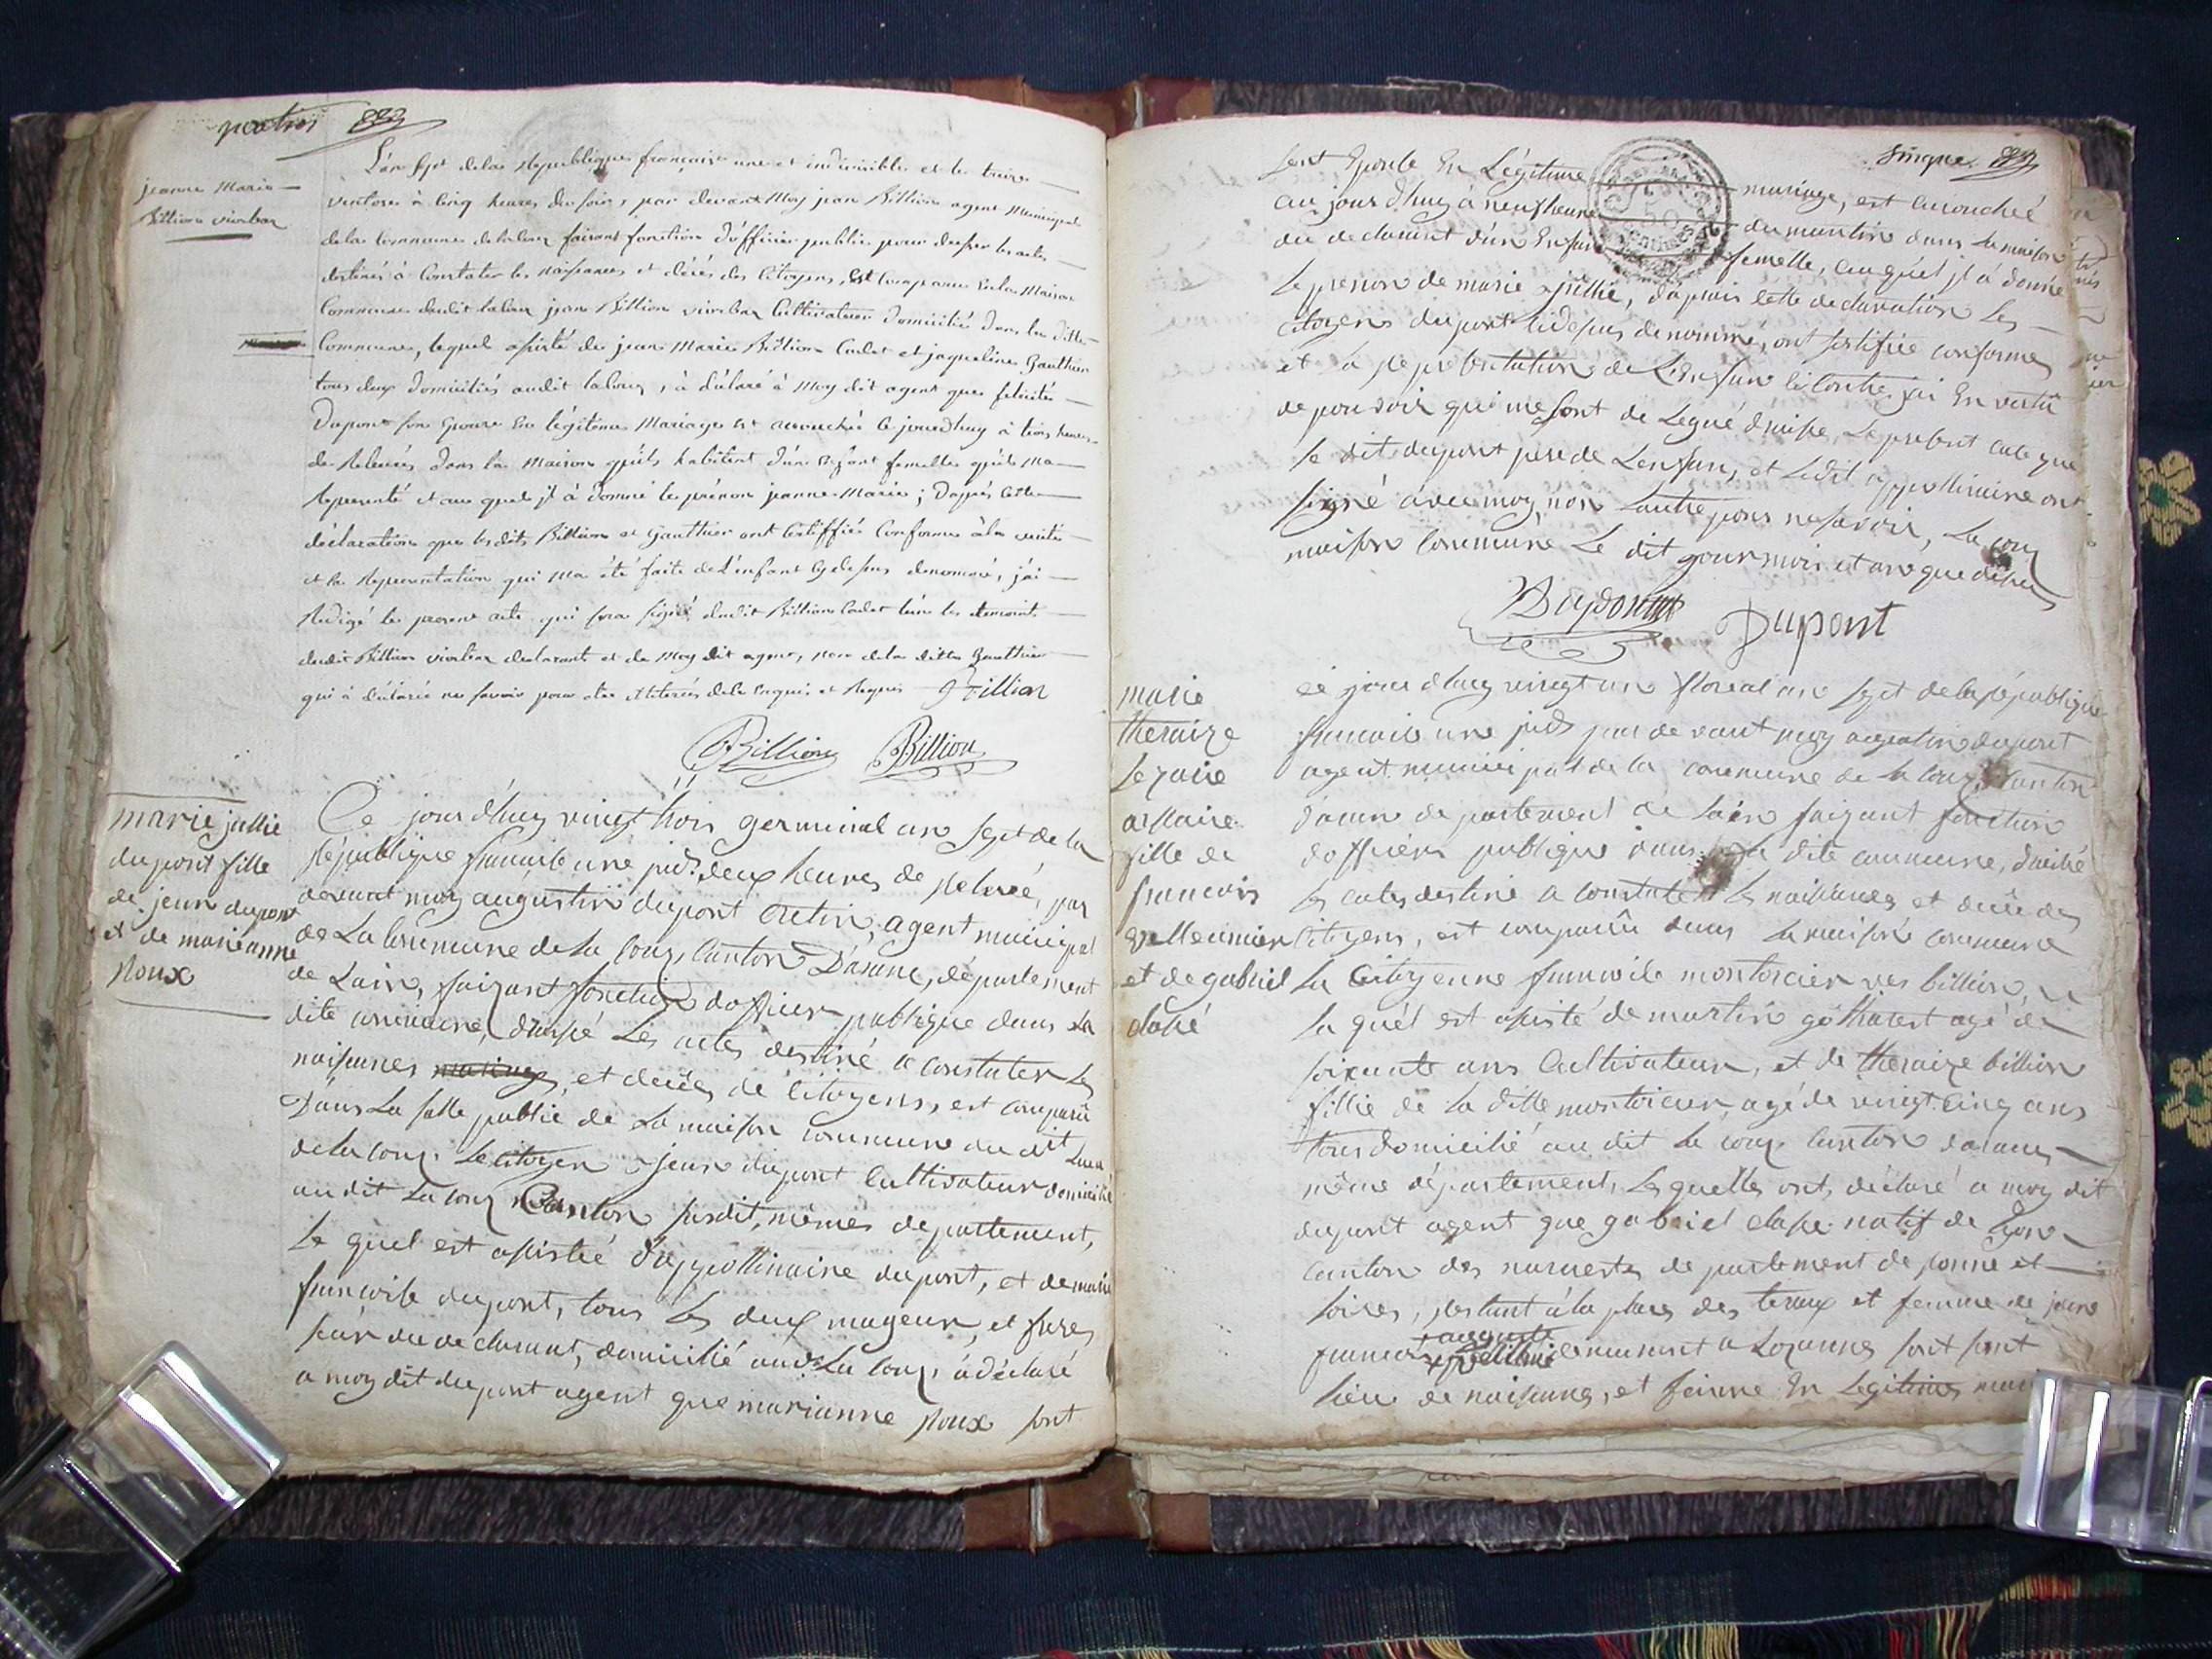 quatres
jeanne Marie
Billion viorbaz
L'an Sept dela Republique française une et indivisible et le treize
ventose à cinq heures du soir, par devant Moy jean Billion agent Municipal
dela Commune delalouz faisant fonction d'officier public pour dresser les actes
destinés à Constater les naissances et décés des Citoyens, est comparu en la Maison
Commune dudit lalouz jean Billion viorbaz Cultivateur domicilié dans la ditte
Commune, lequel assisté de jean Marie Billion Cadet et jaqueline Gauthier
tous deux domiciliés audit lalouz, à déclaré à Moy dit agent que felicité
Dupont son Epouse En légitime Mariage est accouchée le jourdhuy à trois heures
de Relevées dans la Maison qu'ils habitent d'un Enfant femelle qu'ils ma
Representé et au quel jl à donné le prénom jeanne Marie; D'après cette
déclaration que lesdits Billion et Gauthier ont Certiffiés Conforme à la verité
et la Representation qui ma été faite del'enfant cydessus denommé, j'ai
Redigé le present acte qui sera signé dudit Billion Cadet l'un les temoins
dudit Billion viorbaz declarant et de Moy dit agent, non dela ditte Gauthier
qui à déclarée ne savoir pour de Enquis et Requis Billion
Billion Billion
marie jullie
du pont fille
de jean dupont
et de marie anne
Roux
Ce jour d'huy vingt trois germinal an sept de la
République francaise une jnd. deux heures de Relevée, par
devant moy augustin dupont Cretin, agent municipal
de La Commune de la louz, Canton D'aranc, département
de Lain, faizant fonction dofficier publique dans La
dite commune, dressé Les actes destiné a constater Les
naissances mariages, et décès de Citoyens, est comparû
Dans La salle public de La maison commune du dit Lieu
de la louz. Le citoyen jean dupont Cultivateur domicilié
au dit La louz Canton susdit, mêmes departement,
Le quel est assisté d'appollinaire dupont, et de marie
francoise dupont, tous Les deux mageur, et frere,
sœur du declarant, domicilié aud. La louz, à déclaré
a moy dit dupont agent que marianne Roux sont
sinque
sont Epouse En Légitime mariage, est accouchée
au jour d'huy à neuf heure du mantin dans La maison
du declarant d'un Enfant femelle, au quel jl à donné
Le prenon de marie jullie, d'apprais cette declaration Les
Citoyens dupont cidessus denommé, ont sertifiée conforme
et La representation de L'Enfans ci Contre, jai En vertû
de pouvoir qui me sont de Legué dresse, Le present acte que
Le dit dupont pere de L'enfan, et Ledit appollinaire ont
signé avec moy, non Lautre pour ne savoir, La louz
maison Commune Le dit jour mois et an que dessu
Dupont Dupont
marie
theraize
fille de
francois
et de gabriel
clapé
Ce jour d'huy vingt un floreal an sept de la république
francaise une jnd. par de vant moy augustin dupont
agent municipal de la commune de la louz, Canton
daranc departement de Lain faizant fonction
dofficiers publique dans La dite commune, dressé
Les actes destiné a constater les naissances et décès des
Citoyens, est comparûe dans La maison commune
La Citoyenne francoise montorcier ves billion,
La quel est assisté de martin agé de
soixante ans Cultivateur, et de theraize billion
fillie de La ditte montorcier, agé de vingt cinq ans
tous domicilié au dit La louz Canton daranc
même département, Lesquelles ont, déclaré a moy dit
dupont agent que gabriel clapé natif de
canton des departement de sonne et
loires, restant à la place des et femme de jean
francois
Lieu de naissance, et femme En Legitime